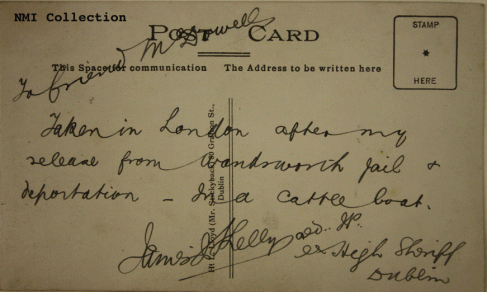 NMI Collection
POST CARD
STAMP
*
HERE
This Space for communication The Address to be written here
To friend McDowell
Taken in London after my
release from Wandsworth Jail &
deportation – In a cattle boat.
James J Kelly J.P.
ex High Sheriff
Dublin
Grafton St.,
Dublin